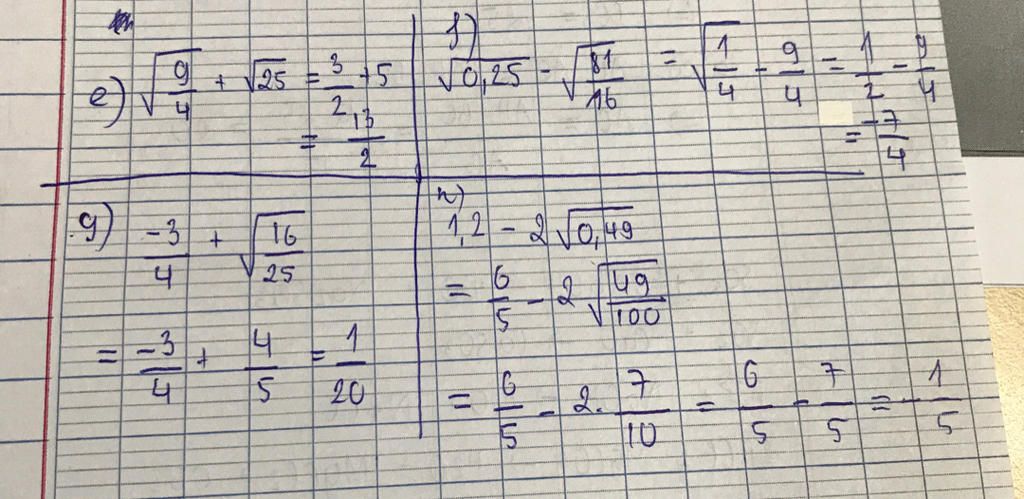 e) √(9/4) + √25 = 3/2 + 5
= 13/2
f)
√0,25 - √(81/16) = √(1/4) - 9/4 = 1/2 - 9/4
= -7/4
g) -3/4 + √(16/25)
= -3/4 + 4/5 = 1/20
h)
1,2 - 2√0,49
= 6/5 - 2√(49/100)
= 6/5 - 2. 7/10 = 6/5 - 7/5 = -1/5